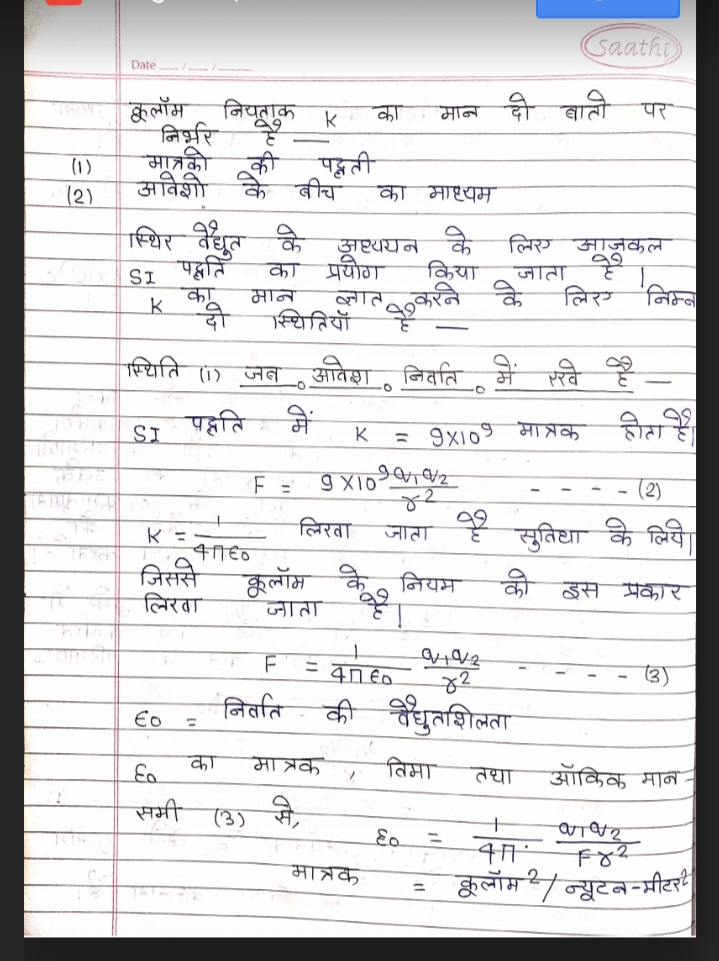 Saathi
Date __/__/__
कूलॉम नियतांक K का मान दो बातो पर
निर्भर है —
(1) मात्रको की पद्दती
(2) आवेशो के बीच का माध्यम
स्थिर वैद्युत के अध्ययन के लिए आजकल
SI पद्दति का प्रयोग किया जाता है।
K का मान ज्ञात करने के लिए निम्न
दो स्थितियाँ है —
स्थिति (1) जब आवेश निर्वात में रखे है —
SI पद्दति में K = 9X10⁹ मात्रक होता है।
F = 9X10⁹ q₁q₂/r² - - - - (2)
K = 1/4πε₀ लिखा जाता है सुविधा के लिये।
जिससे कूलॉम के नियम को इस प्रकार
लिखा जाता है।
F = 1/4πε₀ q₁q₂/r² - - - - (3)
ε₀ = निर्वात की वैद्युतशिलता
ε₀ का मात्रक, विमा तथा ऑकिक मान -
समी (3) से,
ε₀ = 1/4π · q₁q₂/Fr²
मात्रक = कूलॉम²/न्यूटन-मीटर²